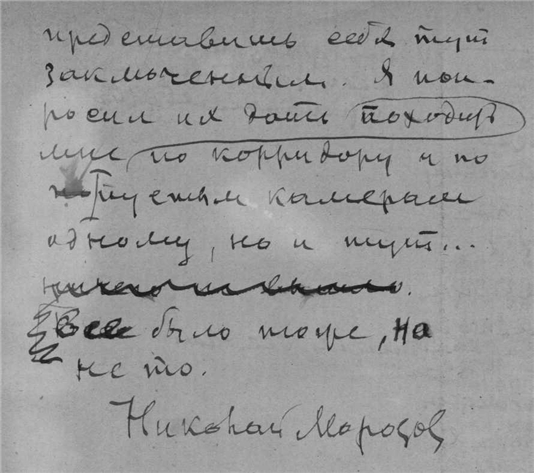 представишь себя тут
заключенным. Я поп-
росил их дать походить
мне по корридору и по
пустым камерам
одному, но и тут...
ничего не вышло.
Все было тоже, на
не то.
Николай Морозов